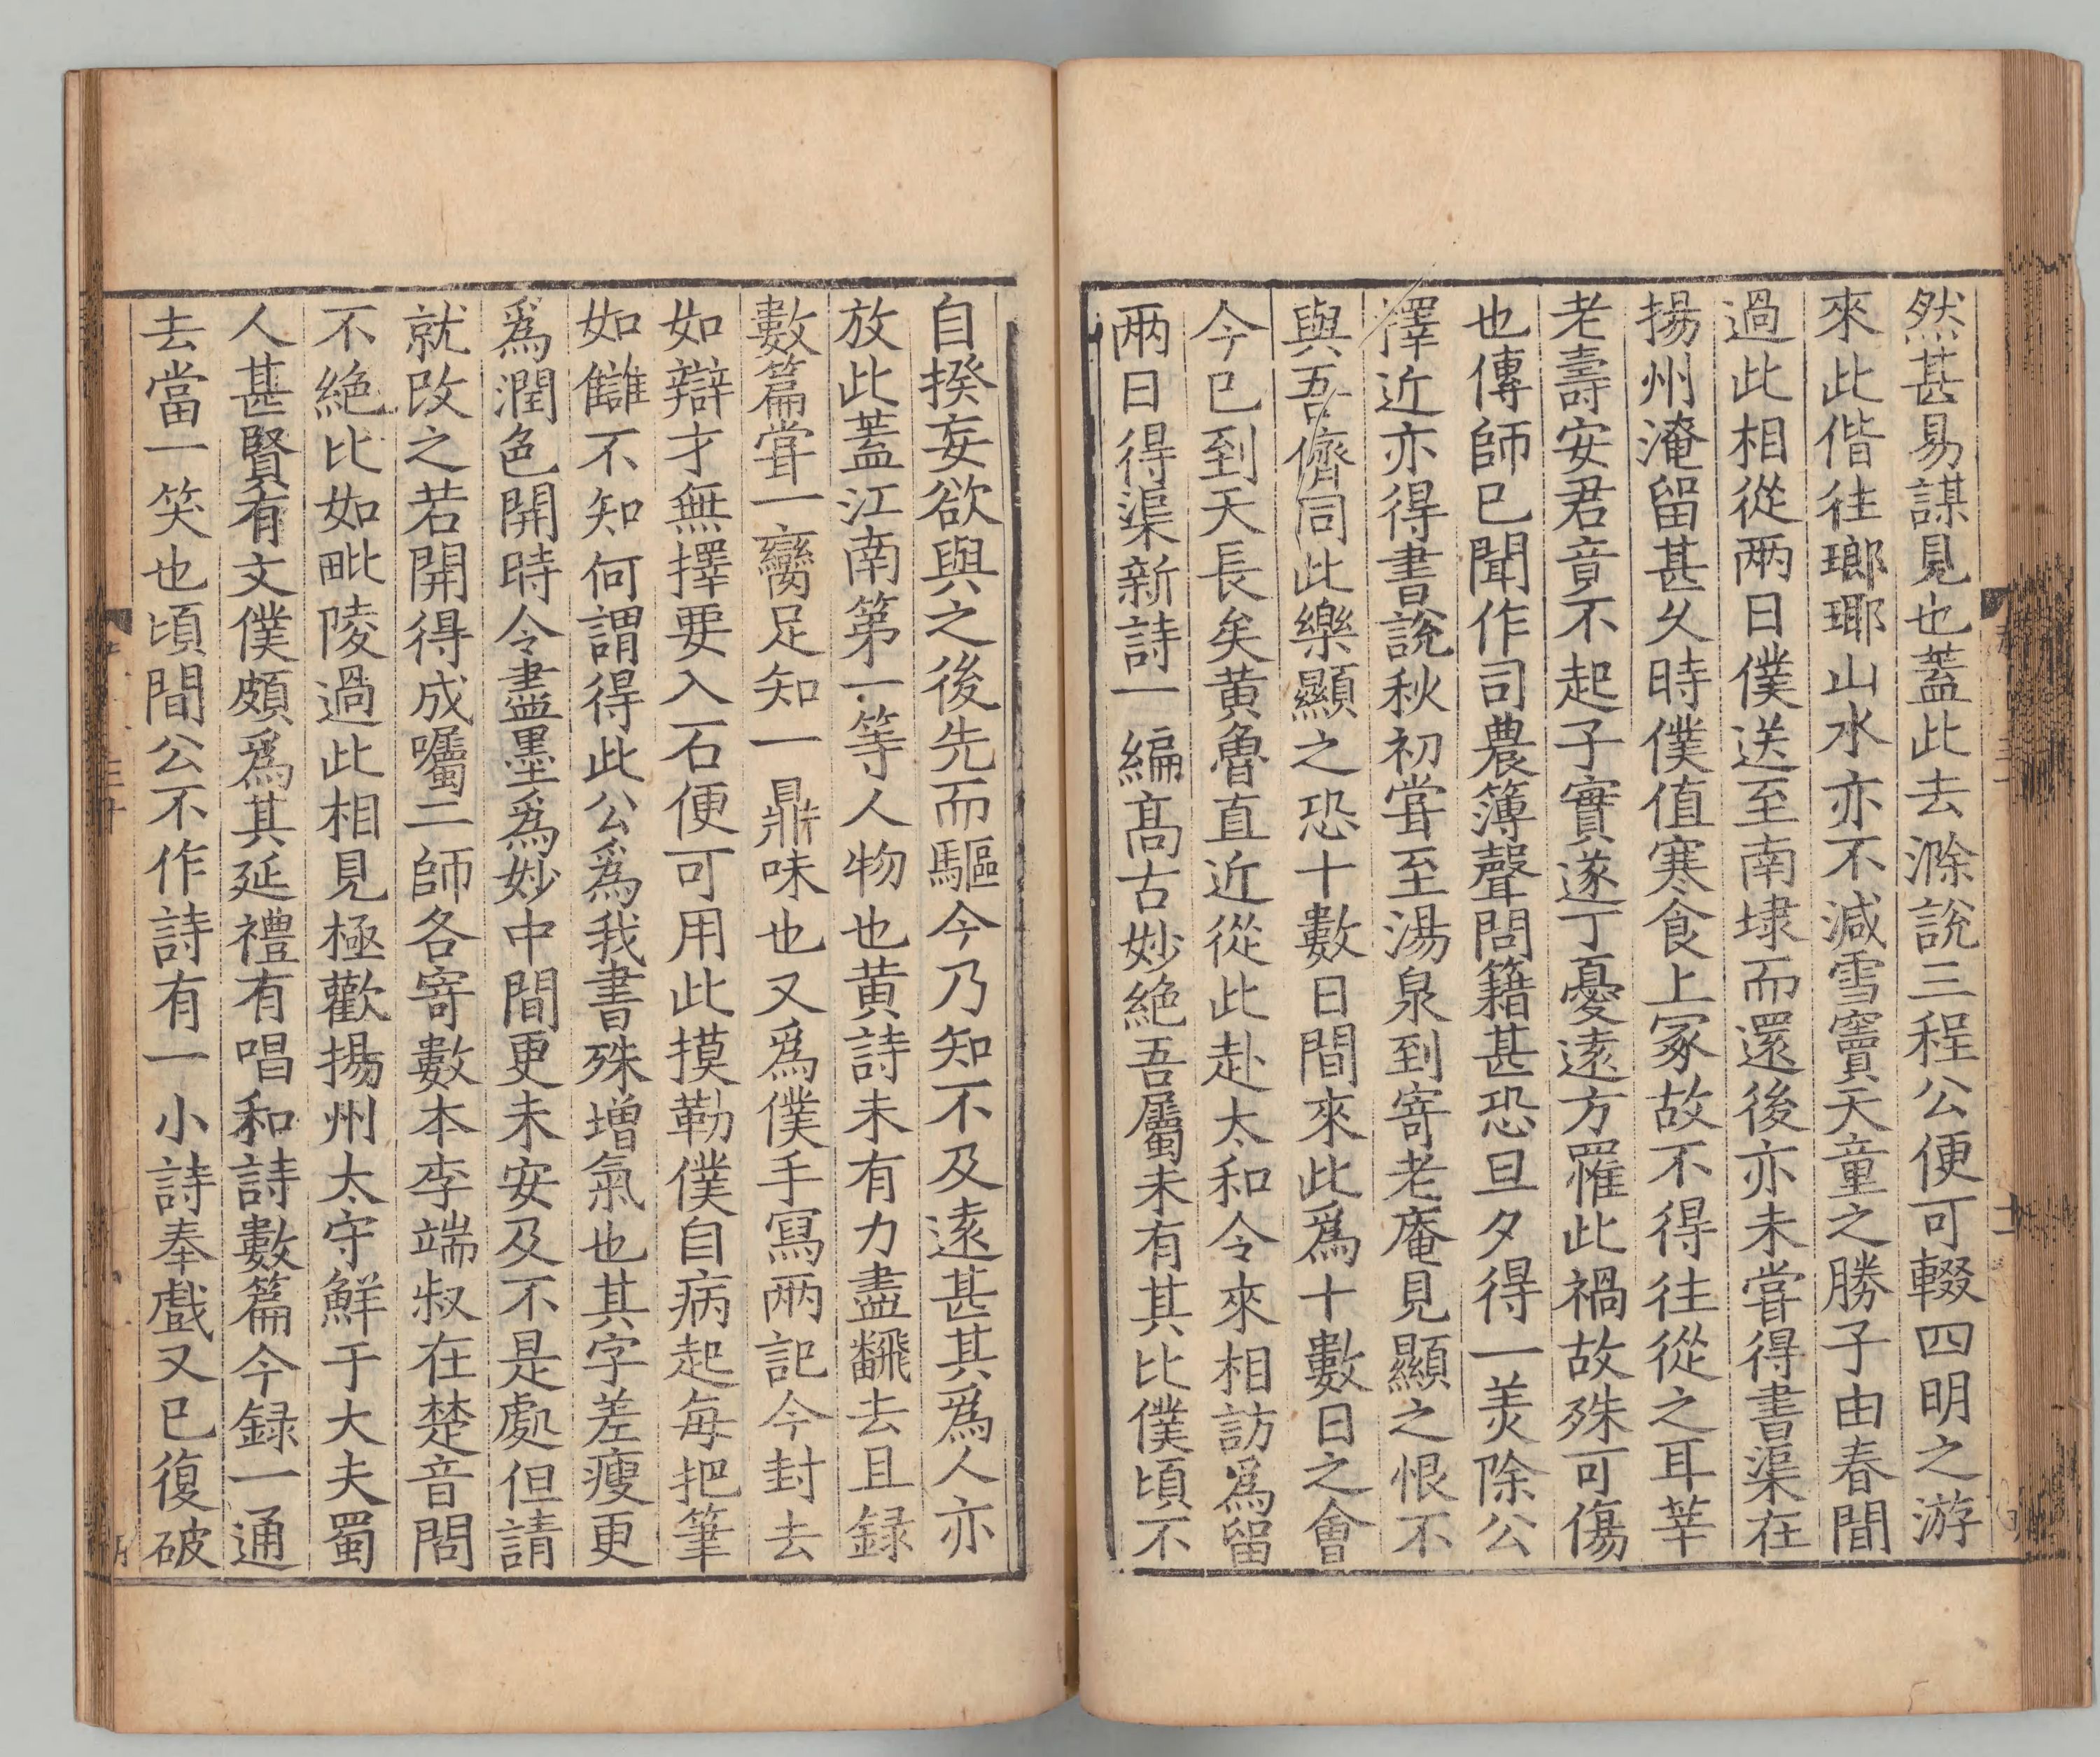 然甚易謀見也蓋此去滁說三程公便可輟四明之游
來此偕往瑯瑘山水亦不減雪竇天童之勝子由春間
過此相從兩日僕送至南埭而還後亦未甞得書渠在
揚州淹留甚久時僕值寒食上冢故不得往從之耳莘
老壽安君竟不起子實遂丁憂遠方罹此禍故殊可傷
也傳師已聞作司農簿聲問籍甚恐旦夕得一羙除公
擇近亦得書說秋初甞至湯泉到寄老庵見顯之恨不
與吾儕同此樂顯之恐十數日間來此爲十數日之會
今已到天長矣黄魯直近從此赴太和令來相訪爲留
兩日得渠新詩一編高古妙絶吾屬未有其比僕頃不
自揆妄欲與之後先而驅今乃知不及遠甚其爲人亦
放此蓋江南第一等人物也黄詩未有力盡飜去且録
數篇甞一臠足知一鼎味也又爲僕手寫兩記今封去
如辯才無擇要入石便可用此摸勒僕自病起每把筆
如讎不知何謂得此公爲我書殊增氣也其字差瘦更
爲潤色開時令盡墨爲妙中間更未安及不是處但請
就改之若開得成囑二師各寄數本李端叔在楚音問
不絶比如毗陵過此相見極歡揚州太守鮮于大夫蜀
人甚賢有文僕頗爲其延禮有唱和詩數篇今録一通
去當一笑也頃間公不作詩有一小詩奉戲又已復破